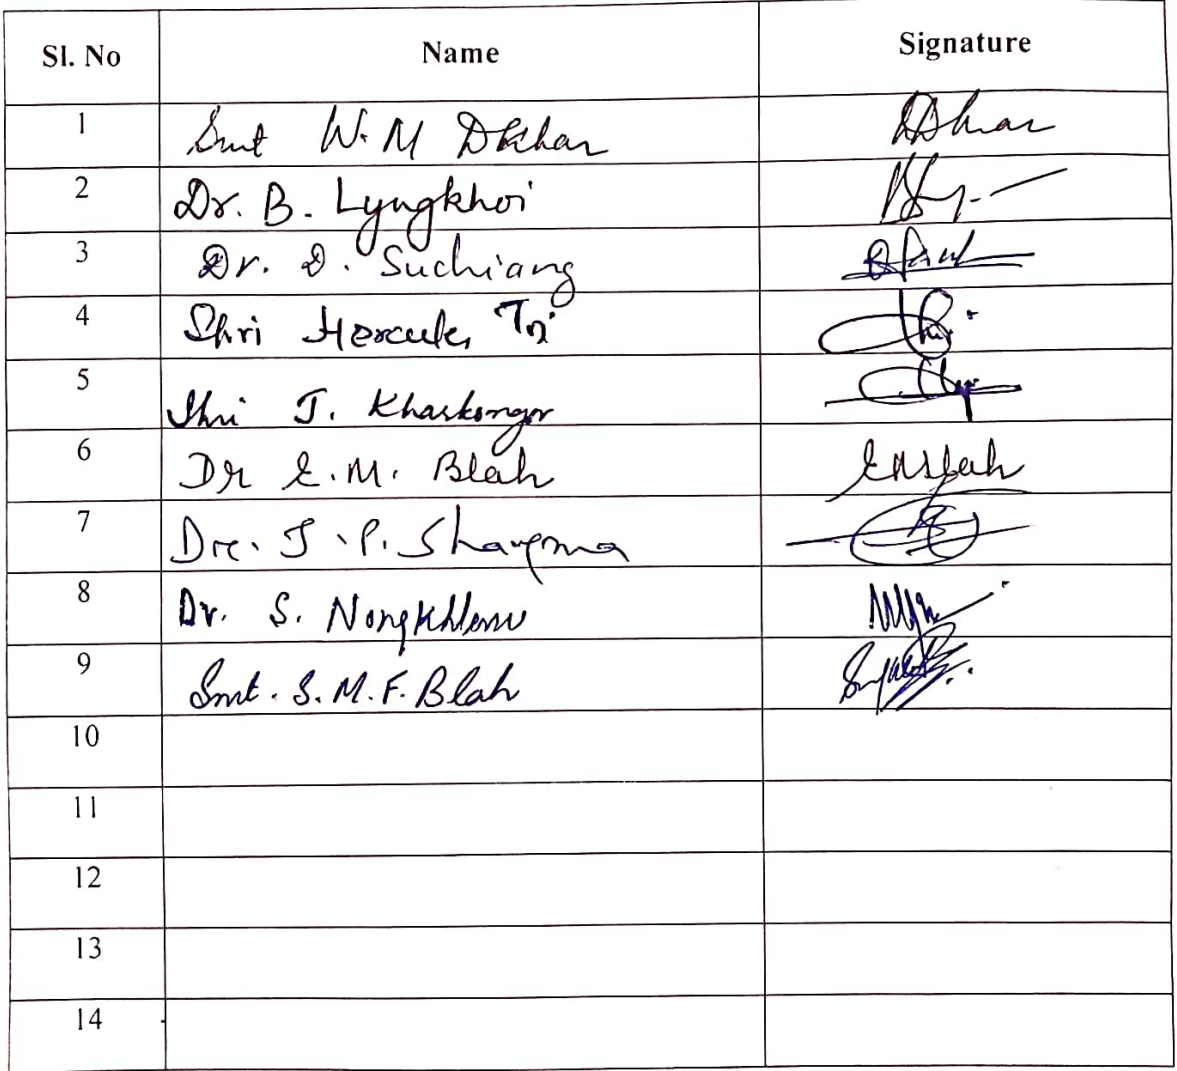 Sl. No Name Signature
1 Smt W. M Dkhar Dkhar
2 Dr. B. Lyngkhoi
3 Dr. D. Suchiang
4 Shri Hercules Toi
5 Shri J. Kharkongor
6 Dr E. M. Blah EMBlah
7 Dr. J. P. Shangma
8 Dr. S. Nongkhlaw
9 Smt. S. M. F. Blah
10
11
12
13
14